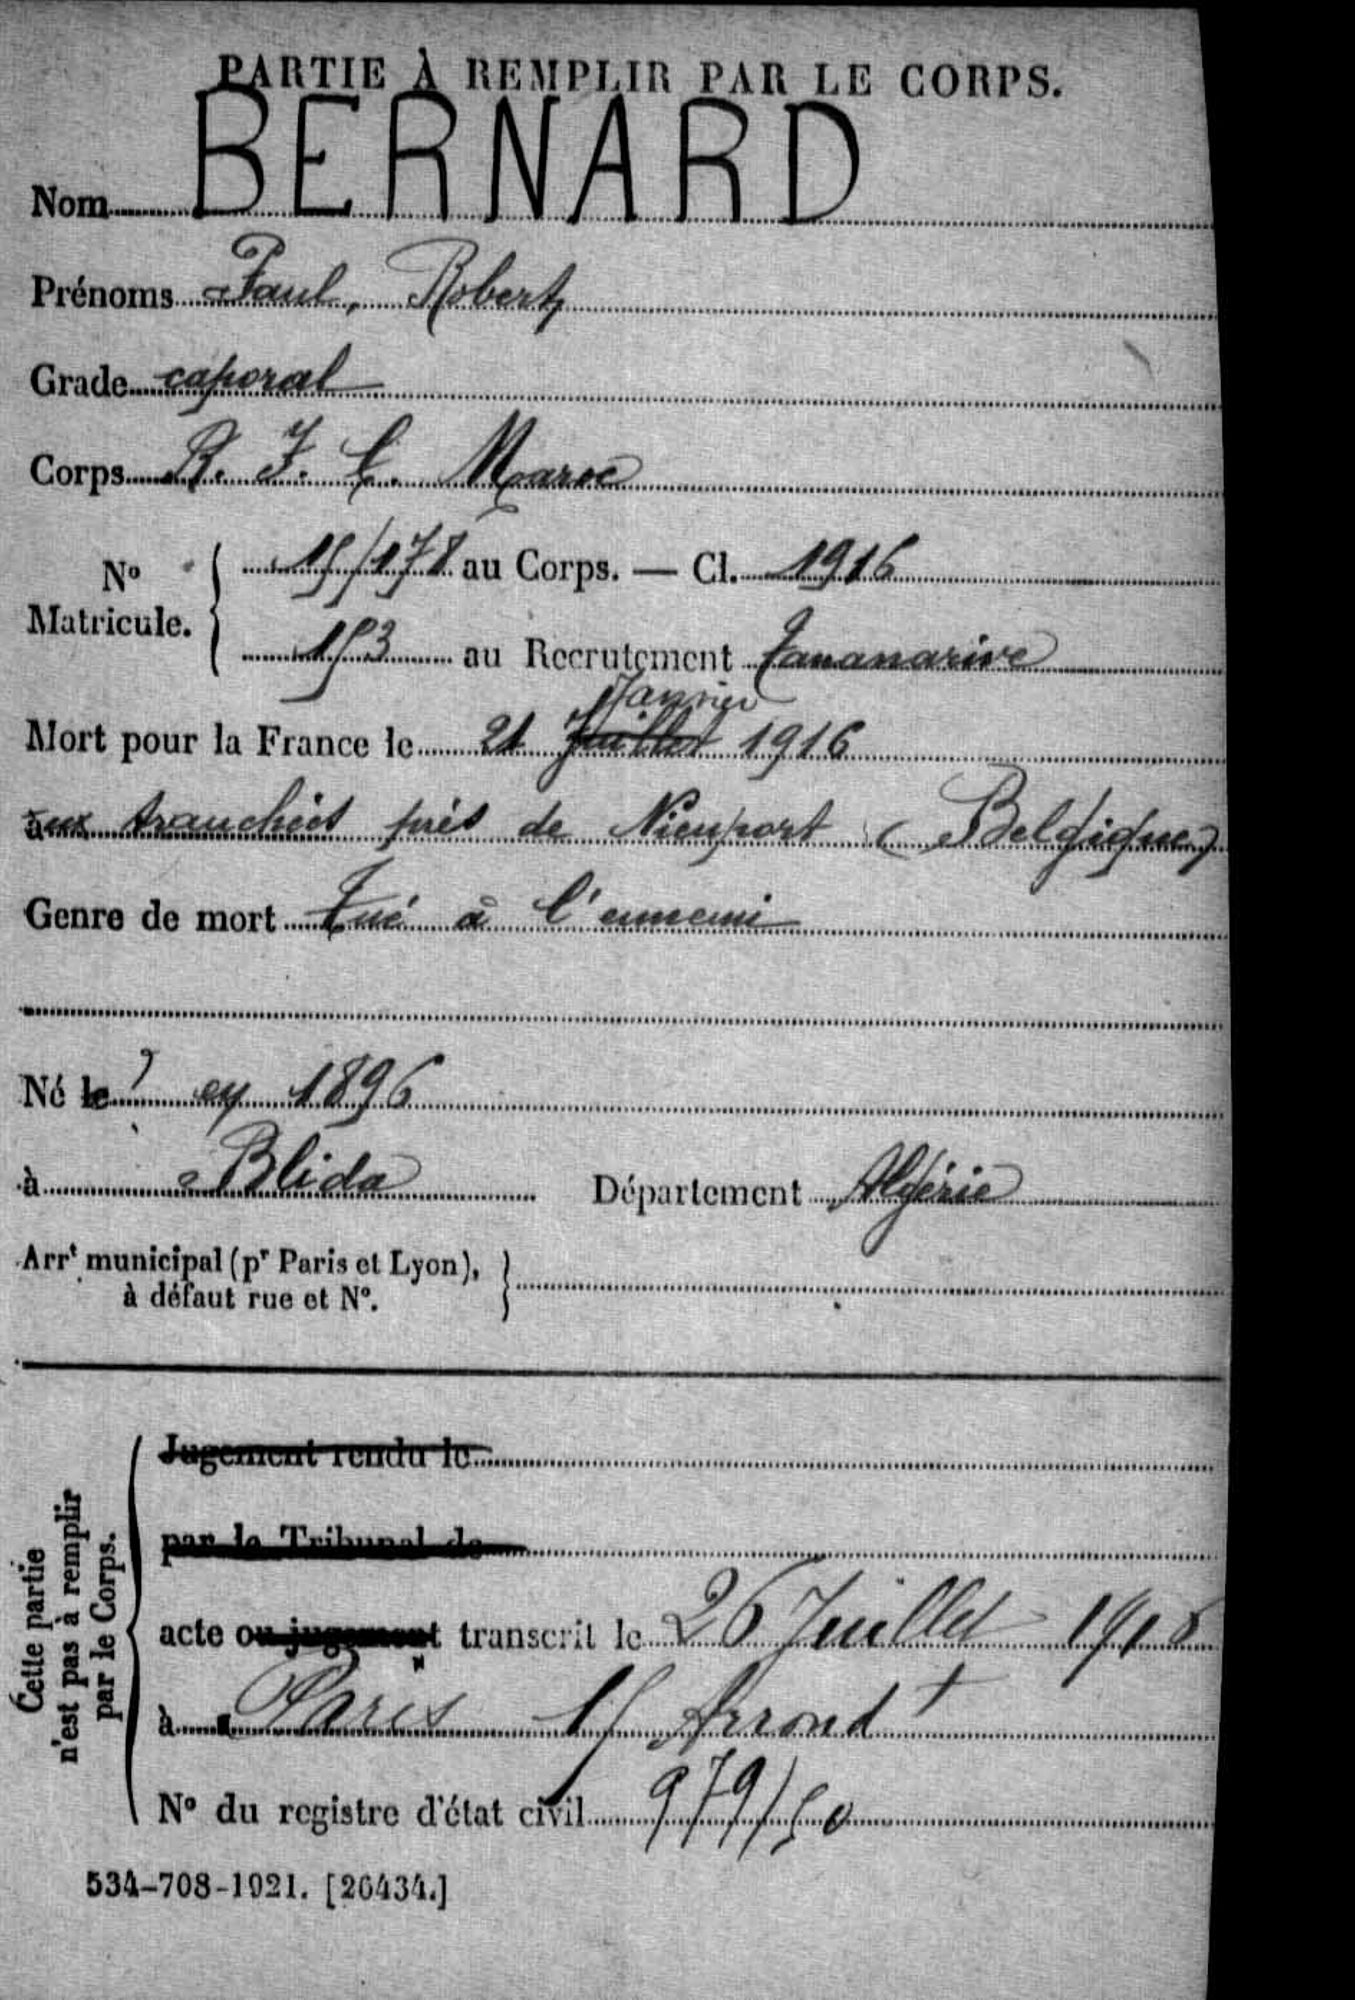 PARTIE À REMPLIR PAR LE CORPS.
Nom BERNARD
Prénoms Paul, Robert
Grade caporal
Corps R. I. C. Maroc
N° Matricule. 15/178 au Corps. — Cl. 1916
153 au Recrutement Tananarive
Janvier
Mort pour la France le 21 Juillet 1916
aux tranchées près de Nieuport (Belgique)
Genre de mort Tué à l'ennemi
Né le ? en 1896
à Blida Département Algérie
Arrt municipal (pr Paris et Lyon),
à défaut rue et N°.
Cette partie
n'est pas à remplir
par le Corps.
Jugement rendu le
par le Tribunal de
acte ou jugement transcrit le 26 Juillet 1918
à Paris 15 Arrondt
N° du registre d'état civil 979/50
534-708-1921. [26434.]